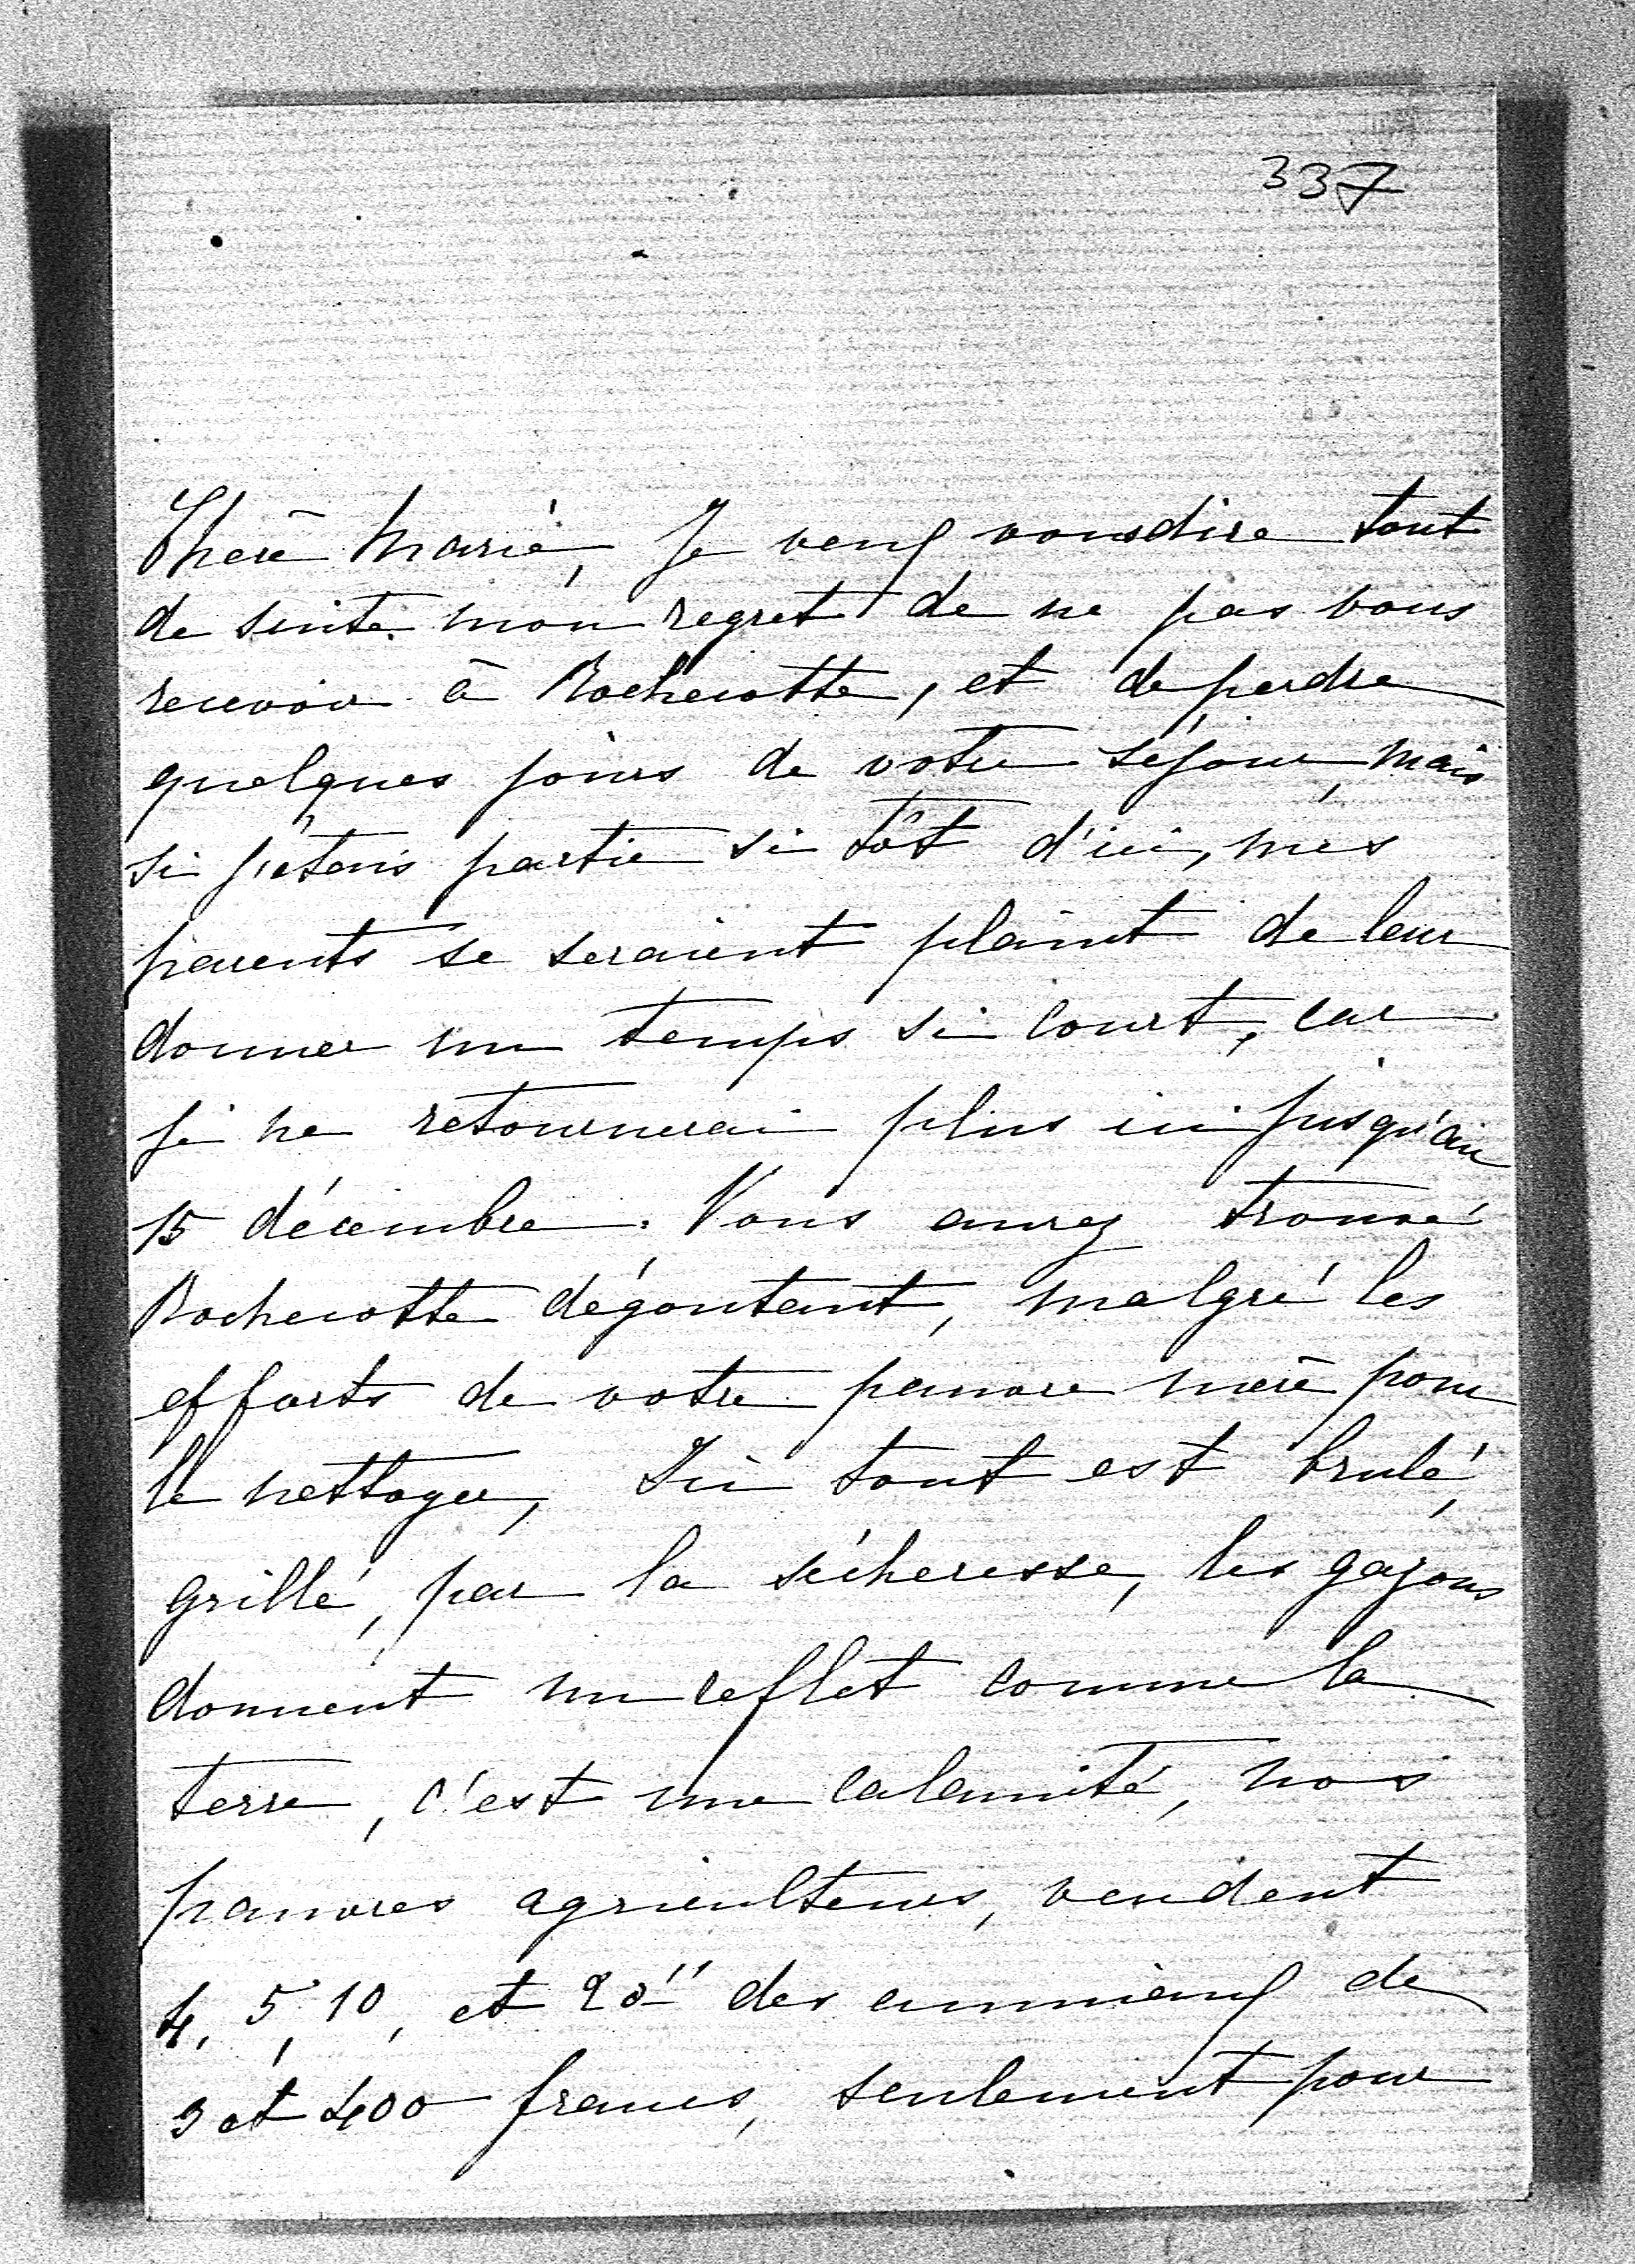 337
Chère Marie, Je veux vous dire tout
de suite mon regret de ne pas vous
recevoir à Rochecotte, et de perdre
quelques jours de votre séjour, mais
si j'étais partie si tôt d'ici, mes
parents se seraient plaint de leur
donner un temps si court, car
je ne retournerai plus ici jusqu'au
15 décembre. Vous aurez trouvé
Rochecotte dégoutant, malgré les
efforts de votre pauvre mère pour
le nettoyer, Ici tout est brulé,
grillé, par la sécheresse, les gazons
donnent un reflet comme la
terre, c'est une calamité, nos
pauvres agriculteurs, vendent
4, 5, 10, et 20" des animaux de
3 et 400 francs, seulement pour